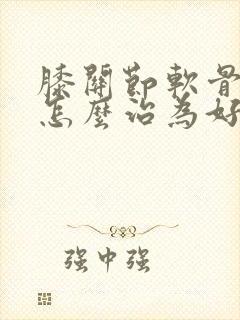 膝關節軟骨
怎麼治為好
强中强